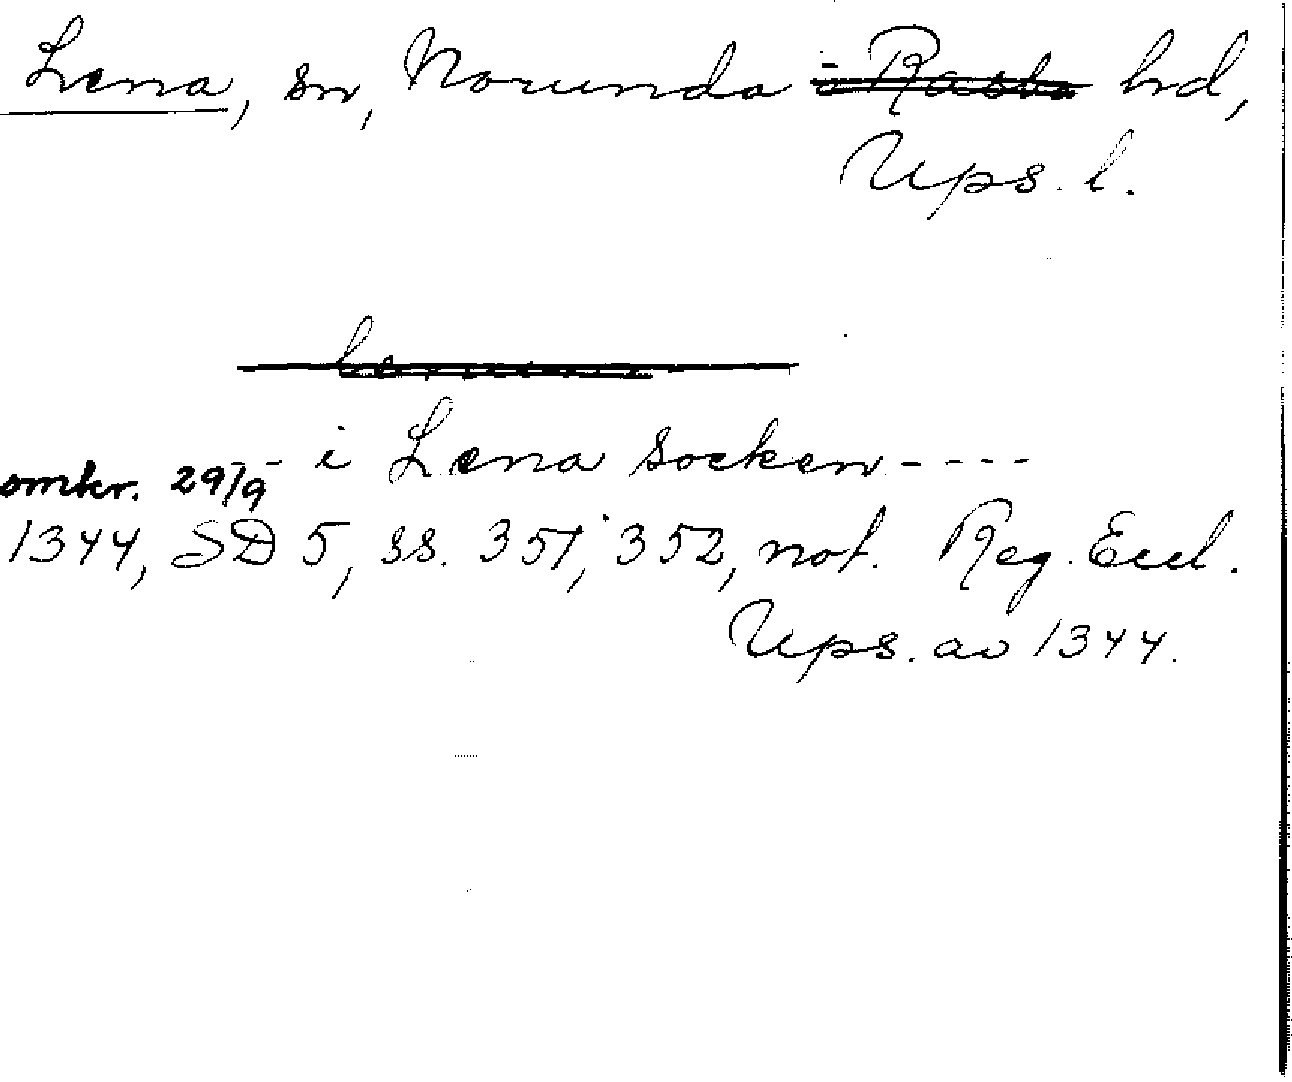 Lena, sn, Norunda hrd,
Ups. l.
- - i Lena socken - - - -
omkr. 29/9
1344, SD 5, ss. 351, 352, not. Reg. Eccl.
Ups. av 1344.